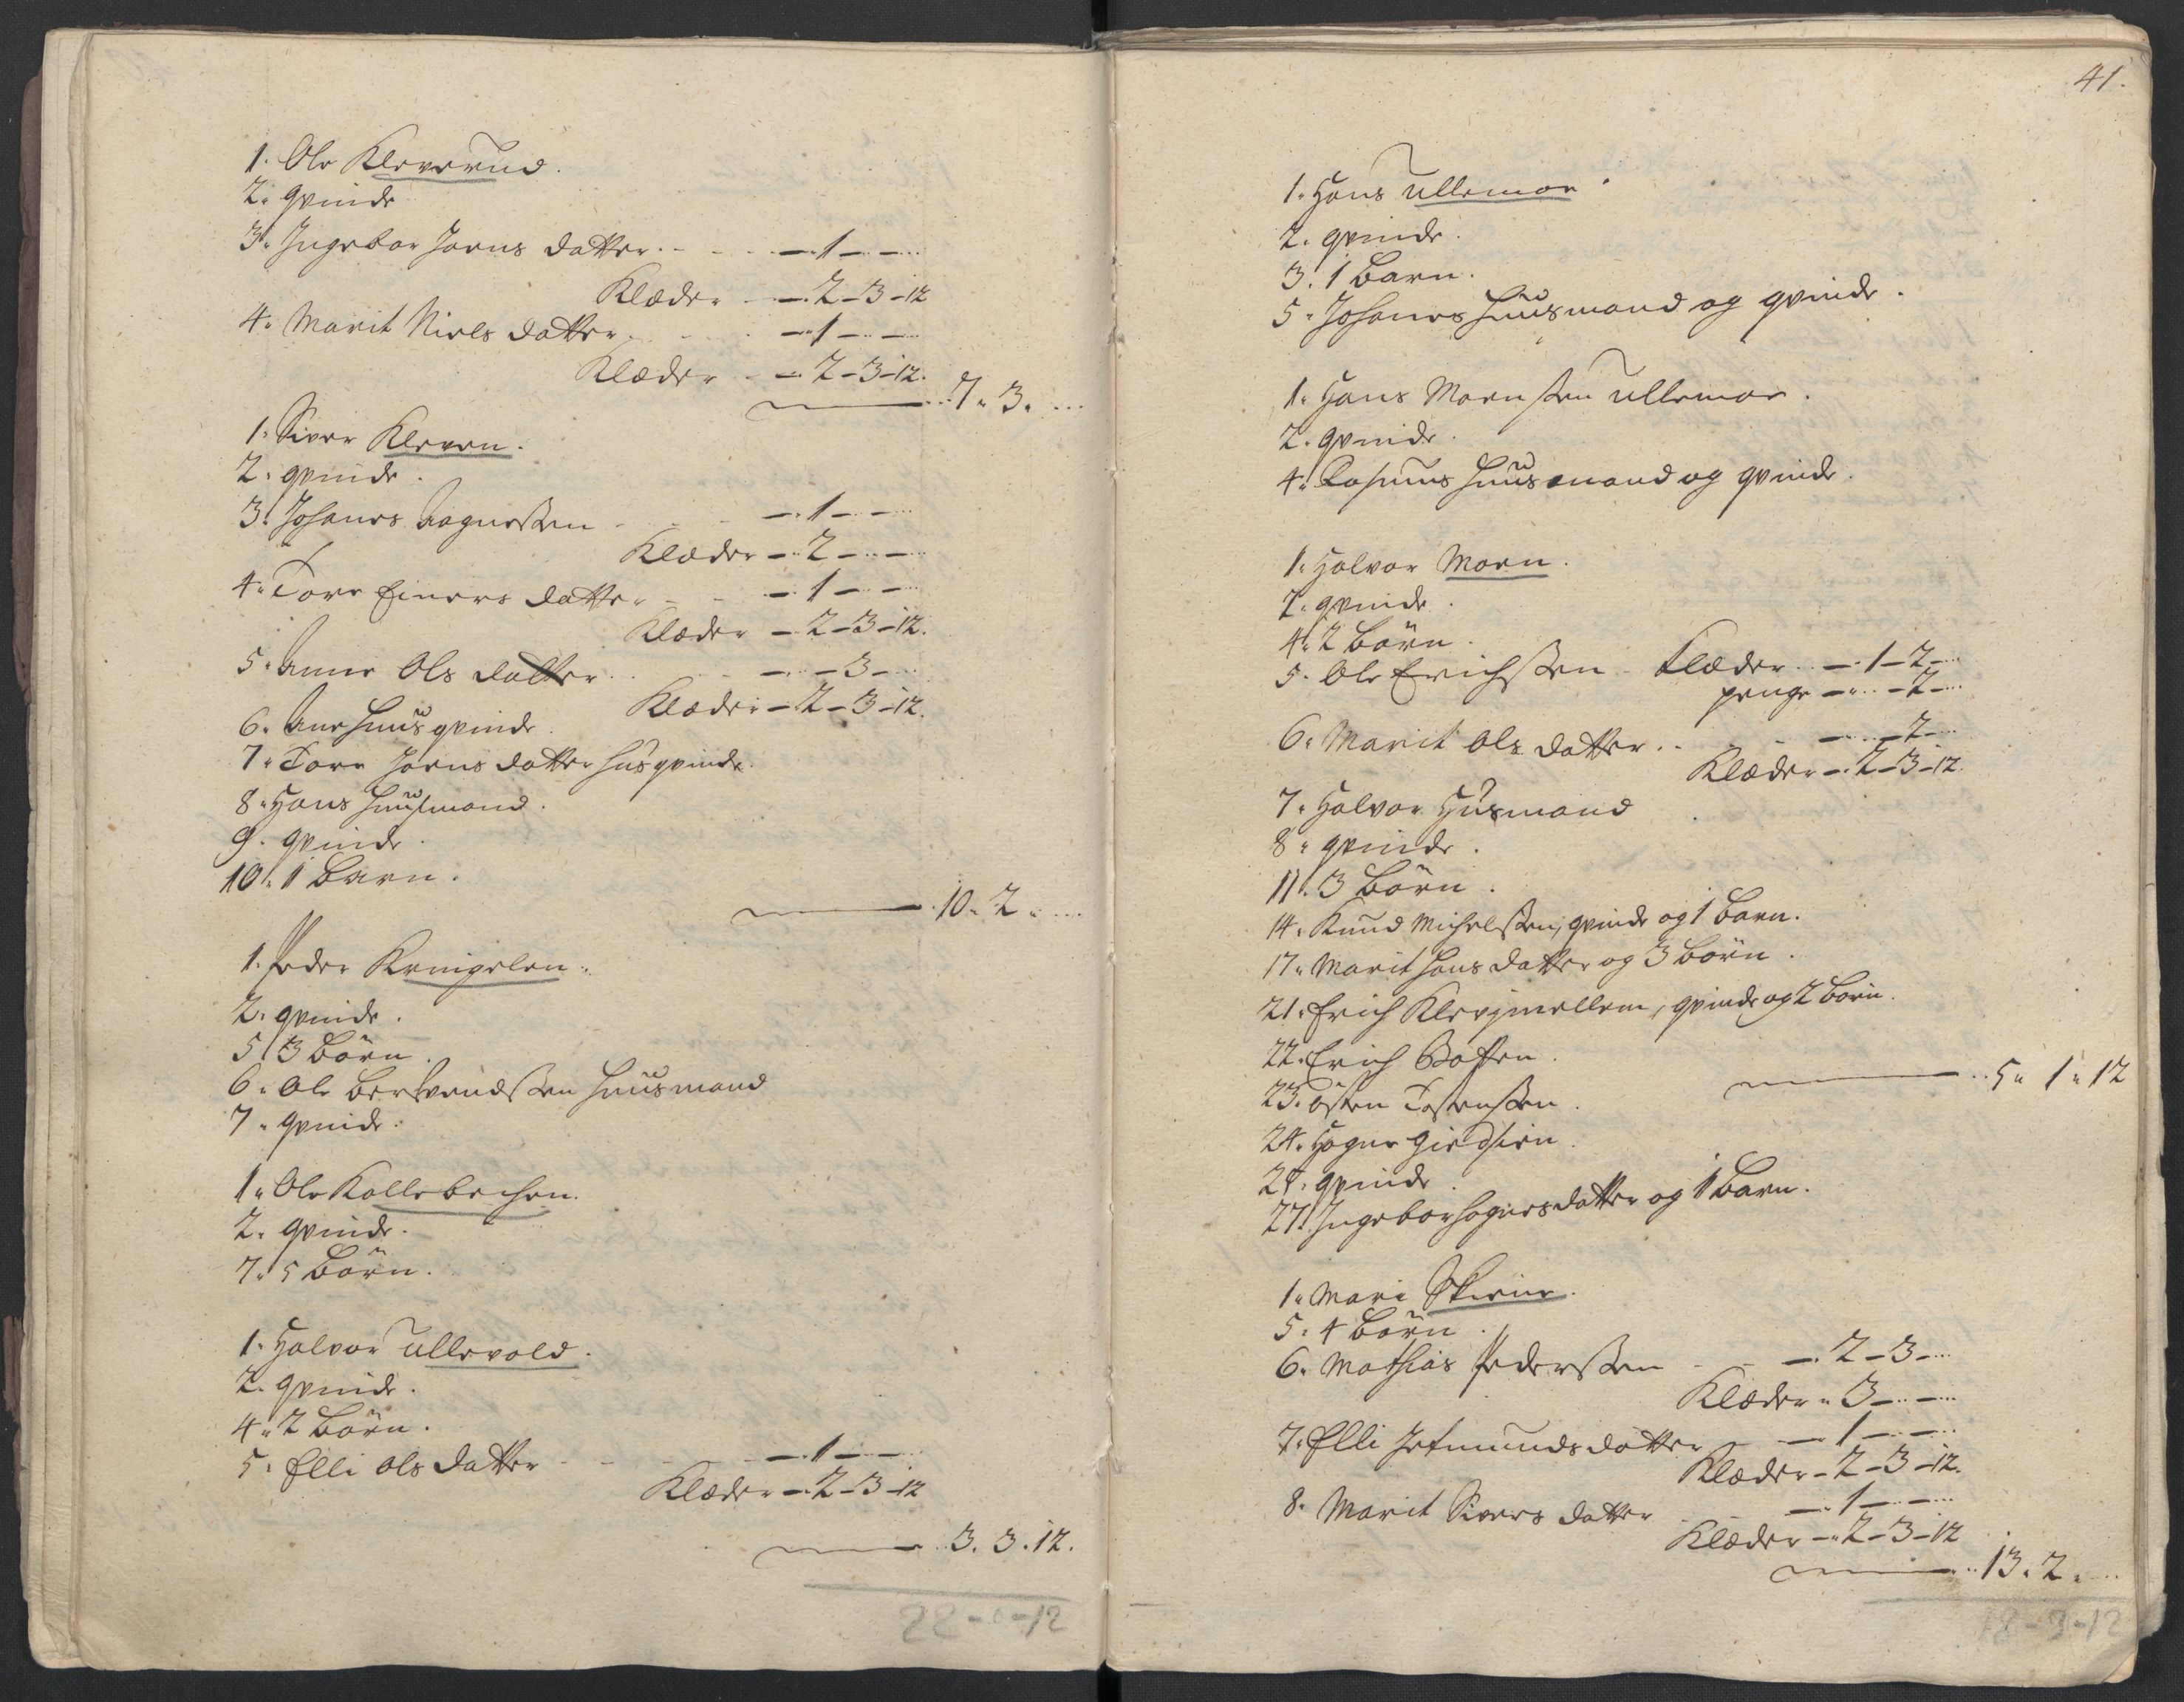 1. Ole Kleverud.
2. qvinde
3. Ingebor Joens datter. - - - 1 - -
Klæder - 2 - 3 - 12
4. Marit Niels datter - 1 - -
Klæder - 2 - 3 - 12.
7. 3. ...
1. Siver Kleven.
2. qvinde.
3. Johanes Aagnessen - 1 - -
Klæder - 2 - -
4. Tore Einers datter - 1 - -
Klæder - 2 - 3 - 12.
5. Anne Ols datter - - 3 -
Klæder - 2 - 3 - 12.
6. Ane huusqvinde.
7. Tore Joens datter husqvinde.
8. Hans huusmand.
9. qvinde.
10. 1 Barn.
10. 2. ...
1. Peder Kringelen.
2. qvinde.
5. 3 Börn.
6. Ole huusmand
7. qvinde.
1. Ole Kollebechen.
2. qvinde.
7. 5 Börn.
1. Halvor Ullevold.
2. qvinde.
4. 2 Börn.
5. Elli Ols datter - 1 - -
Klæder - 2 - 3 - 12
3. 3. 12.
22 - 0 - 12
41.
1. Hans Ullemoe.
2. qvinde.
3. 1 Barn.
5. Johanes huusmand og qvinde.
1. Hans Moensen Ullemoe.
2. qvinde.
4. Rasmus huusmand og qvinde.
1. Halvor Moen.
2. qvinde.
4. 2 Börn.
5. Ole Erichsen Klæder - 1 - 2 -
penge - - 2 -
6. Marit Ols datter - - 2 -
Klæder - 2 - 3 - 12.
7. Halvor Husmand
8. qvinde.
11. 3 Börn.
14. Knud Michelsen, qvinde og 1 Barn.
17. Marit Hans datter og 3 Börn.
21. Erich Klevjmellem, qvinde og 2 Börn.
22. Erich
5. 1. 12
23. Östen Tostensen.
24. Hagne
25. qvinde.
27. Ingebor Hagnes datter og 1 Barn.
1. Mari
5. 4 Börn.
6. Mathias Pedersen - 2 - 3 -
Klæder - 3 - -
7. Elli Jetmunds datter - 1 - -
Klæder - 2 - 3 - 12.
8. Marit Sivers datter - 1 - -
Klæder - 2 - 3 - 12
13. 2. ...
18 - 3 - 12